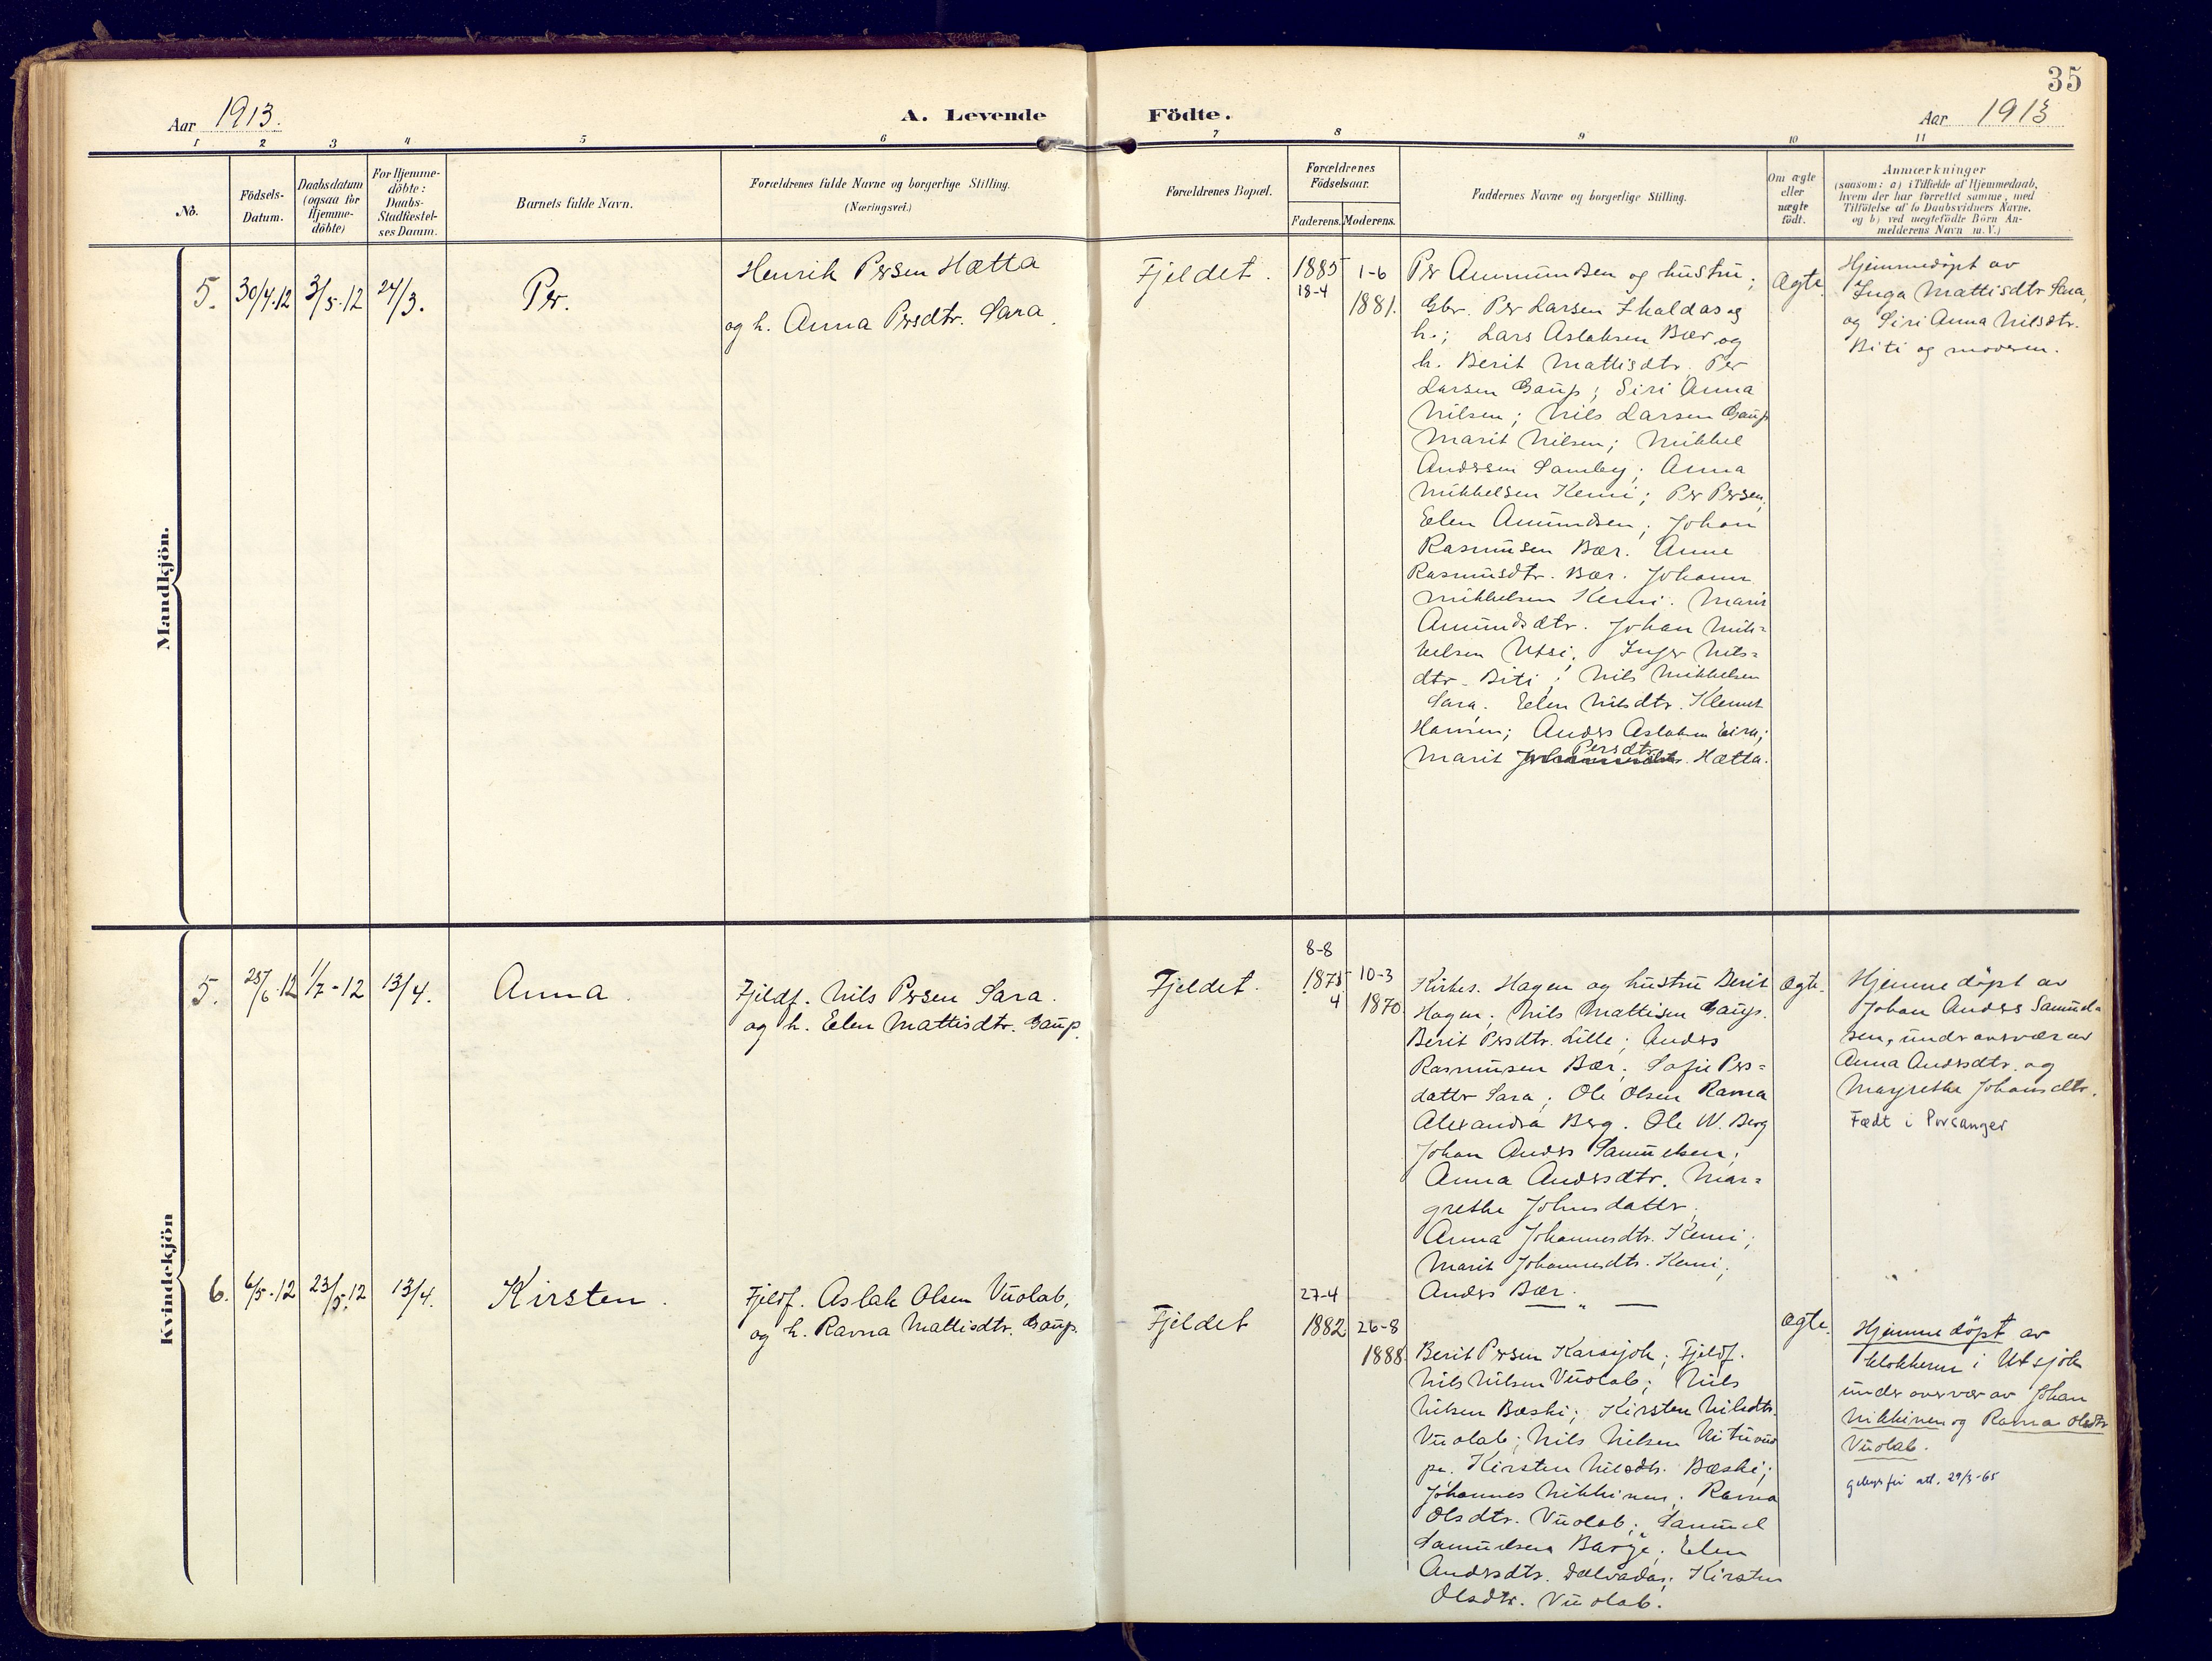 35
Aar 1913.
A. Levende Födte.
Aar 1913
1 2 3 4 5 6 7 8 9 10 11
No.
Födsels-
Datum.
Daabsdatum
(ogsaa for
Hjemme-
döbte)
For Hjemme-
döbte:
Daabs-
Stadfæstel-
ses Datum.
Barnets fulde Navn.
Forældrenes fulde Navne og borgerlige Stilling.
(Næringsvei.)
Forældrenes Bopæl.
Forældrenes
Födselsaar.
Faderens. Moderens.
Faddernes Navne og borgerlige Stilling.
Om ægte
eller
uægte
födt.
Anmærkninger
(saasom: a) i Tilfælde af Hjemmedaab,
hvem der har forrettet samme, med
Tilföielse af to Daabsvidners Navne,
og b) ved uægtefödte Börn An-
melderens Navn m. V.)
Mandkjön.
5.
30/4.12
3/5.12
24/3.
Per.
Henrik Persen Hætta
og h. Anna Persdtr. Sara.
Fjeldet.
1885
18-4
1-6
1881.
Per Ammundsen og hustru;
Gbr. Per Larsen Skoldas og
h.; Lars Aslaksen Bær og
h. Berit Mattisdtr. Per
Larsen Gaup; Siri Anna
Nilsen; Nils Larsen Gaup
Marit Nilsen; Mikkel
Andersen Somby; Anna
Mikkelsen Kemi; Per Persen;
Elen Amundsen; Johan
Rasmusen Bær. Anne
Rasmusdtr. Bær. Johann
Mikkelsen Kemi. Marit
Amundsdtr. Johan Mik=
kelsen Utsi; Inger Nils=
dtr. Biti; Nils Mikkelsen
Sara. Elen Nilsdtr. Klemet
Hansen; Anders Aslaksen Eira;
Persdtr
Marit Hætta.
Ægte.
Hjemmedøpt av
Inga Mattisdtr Sara,
og Siri Anna Nilsdtr.
Biti og moderen.
Kvindekjön
5.
28/6.12
1/7-12
13/4.
Anna.
Fjeldf. Nils Persen Sara.
og h. Elen Mattisdtr. Gaup.
Fjeldet.
8-8
1875
4
10-3
1870
Kirkes. Hagen og hustru Berit
Hagen; Nils Mattisen Gaup.
Berit Persdtr. Lille; Anders
Rasmusen Bær; Sofie Pers=
datter Sara; Ole Olsen Ravna
Alexandra Berg. Ole W. Berg
Johan Anders Samuelsen;
Anna Andersdtr. Mar=
grethe Johnsdatter;
Anna Johannesdtr. Kemi;
Marit Johannesdtr. Kemi;
Anders Bær.
Ægte.
Hjemmedøpt av
Johan Anders Samuel
sen, under overvær av
Anna Andersdtr. og
Margrethe Johansdtr.
Født i Porsanger
6.
6/5.12
23/5.12
13/4.
Kirsten.
Fjeldf. Aslak Olsen Vuolab,
og h. Ravna Mattisdtr. Gaup.
Fjeldet
27-4
1882
26-8
1888
Berit Persen Karasjok; Fjeldf.
Nils Nilsen Vuolab; Nils
Nilsen Bæski; Kirsten Nilsdtr.
Vuolab; Nils Nilsen
Kirsten Nilsdtr. Bæski;
Johannes Nikkinen; Ravna
Olsdtr. Vuolab; Samuel
Samuelsen Barge; Elen
Andersdtr. Dalvadas; Kirsten
Olsdtr. Vuolab.
Ægte.
Hjemmedøpt av
klokkeren i Utsjok
under overvær av Johan
Nikkinen og Ravna Olsdtr
Vuolab.
att. 29/3-65